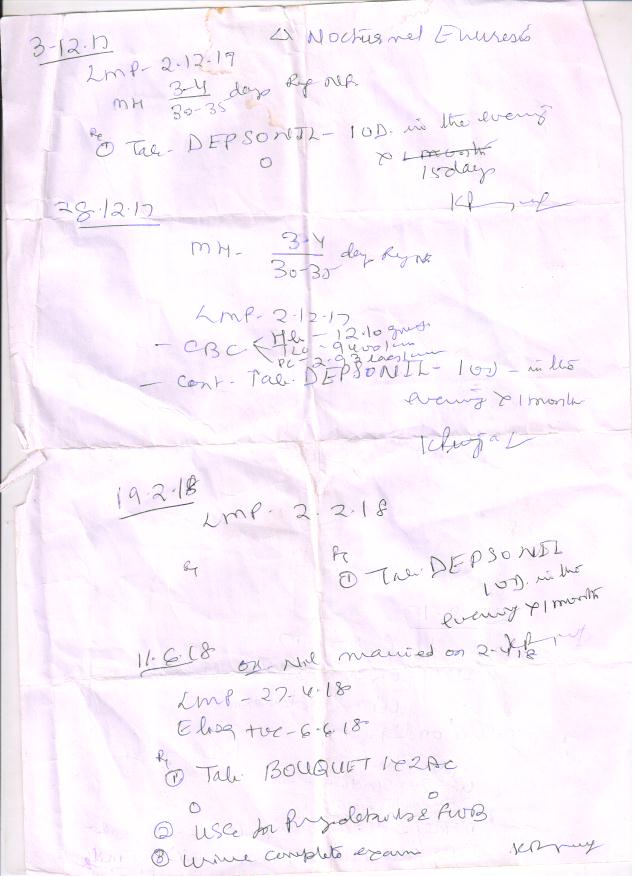 3-12-17
△ Nocturnal Enuresis
LMP- 2.12.17
MH 3-4/30-35 days Reg NR
Rx
① Tab. DEPSONIL- 1OD. in the evening
x 1 month
15 days
28.12.17
MH- 3-4/30-35 days Reg NR
LMP- 2.12.17
- CBC < Hb - 12.10 gms
TLC - 9400/cum
PC - 2.93 lacs/cum
- Cont. Tab. DEPSONIL- 1OD - in the
evening x 1 month
19.2.18
LMP- 2.2.18
Rx
① Tab. DEPSONIL
1OD. in the
evening x 1 month
11.6.18 married on 2.4.18
LMP- 27.4.18
+ve - 6.6.18
Rx
① Tab. BOUQUET 1x2 AC
② USG for & FWB
③ urine complete exam